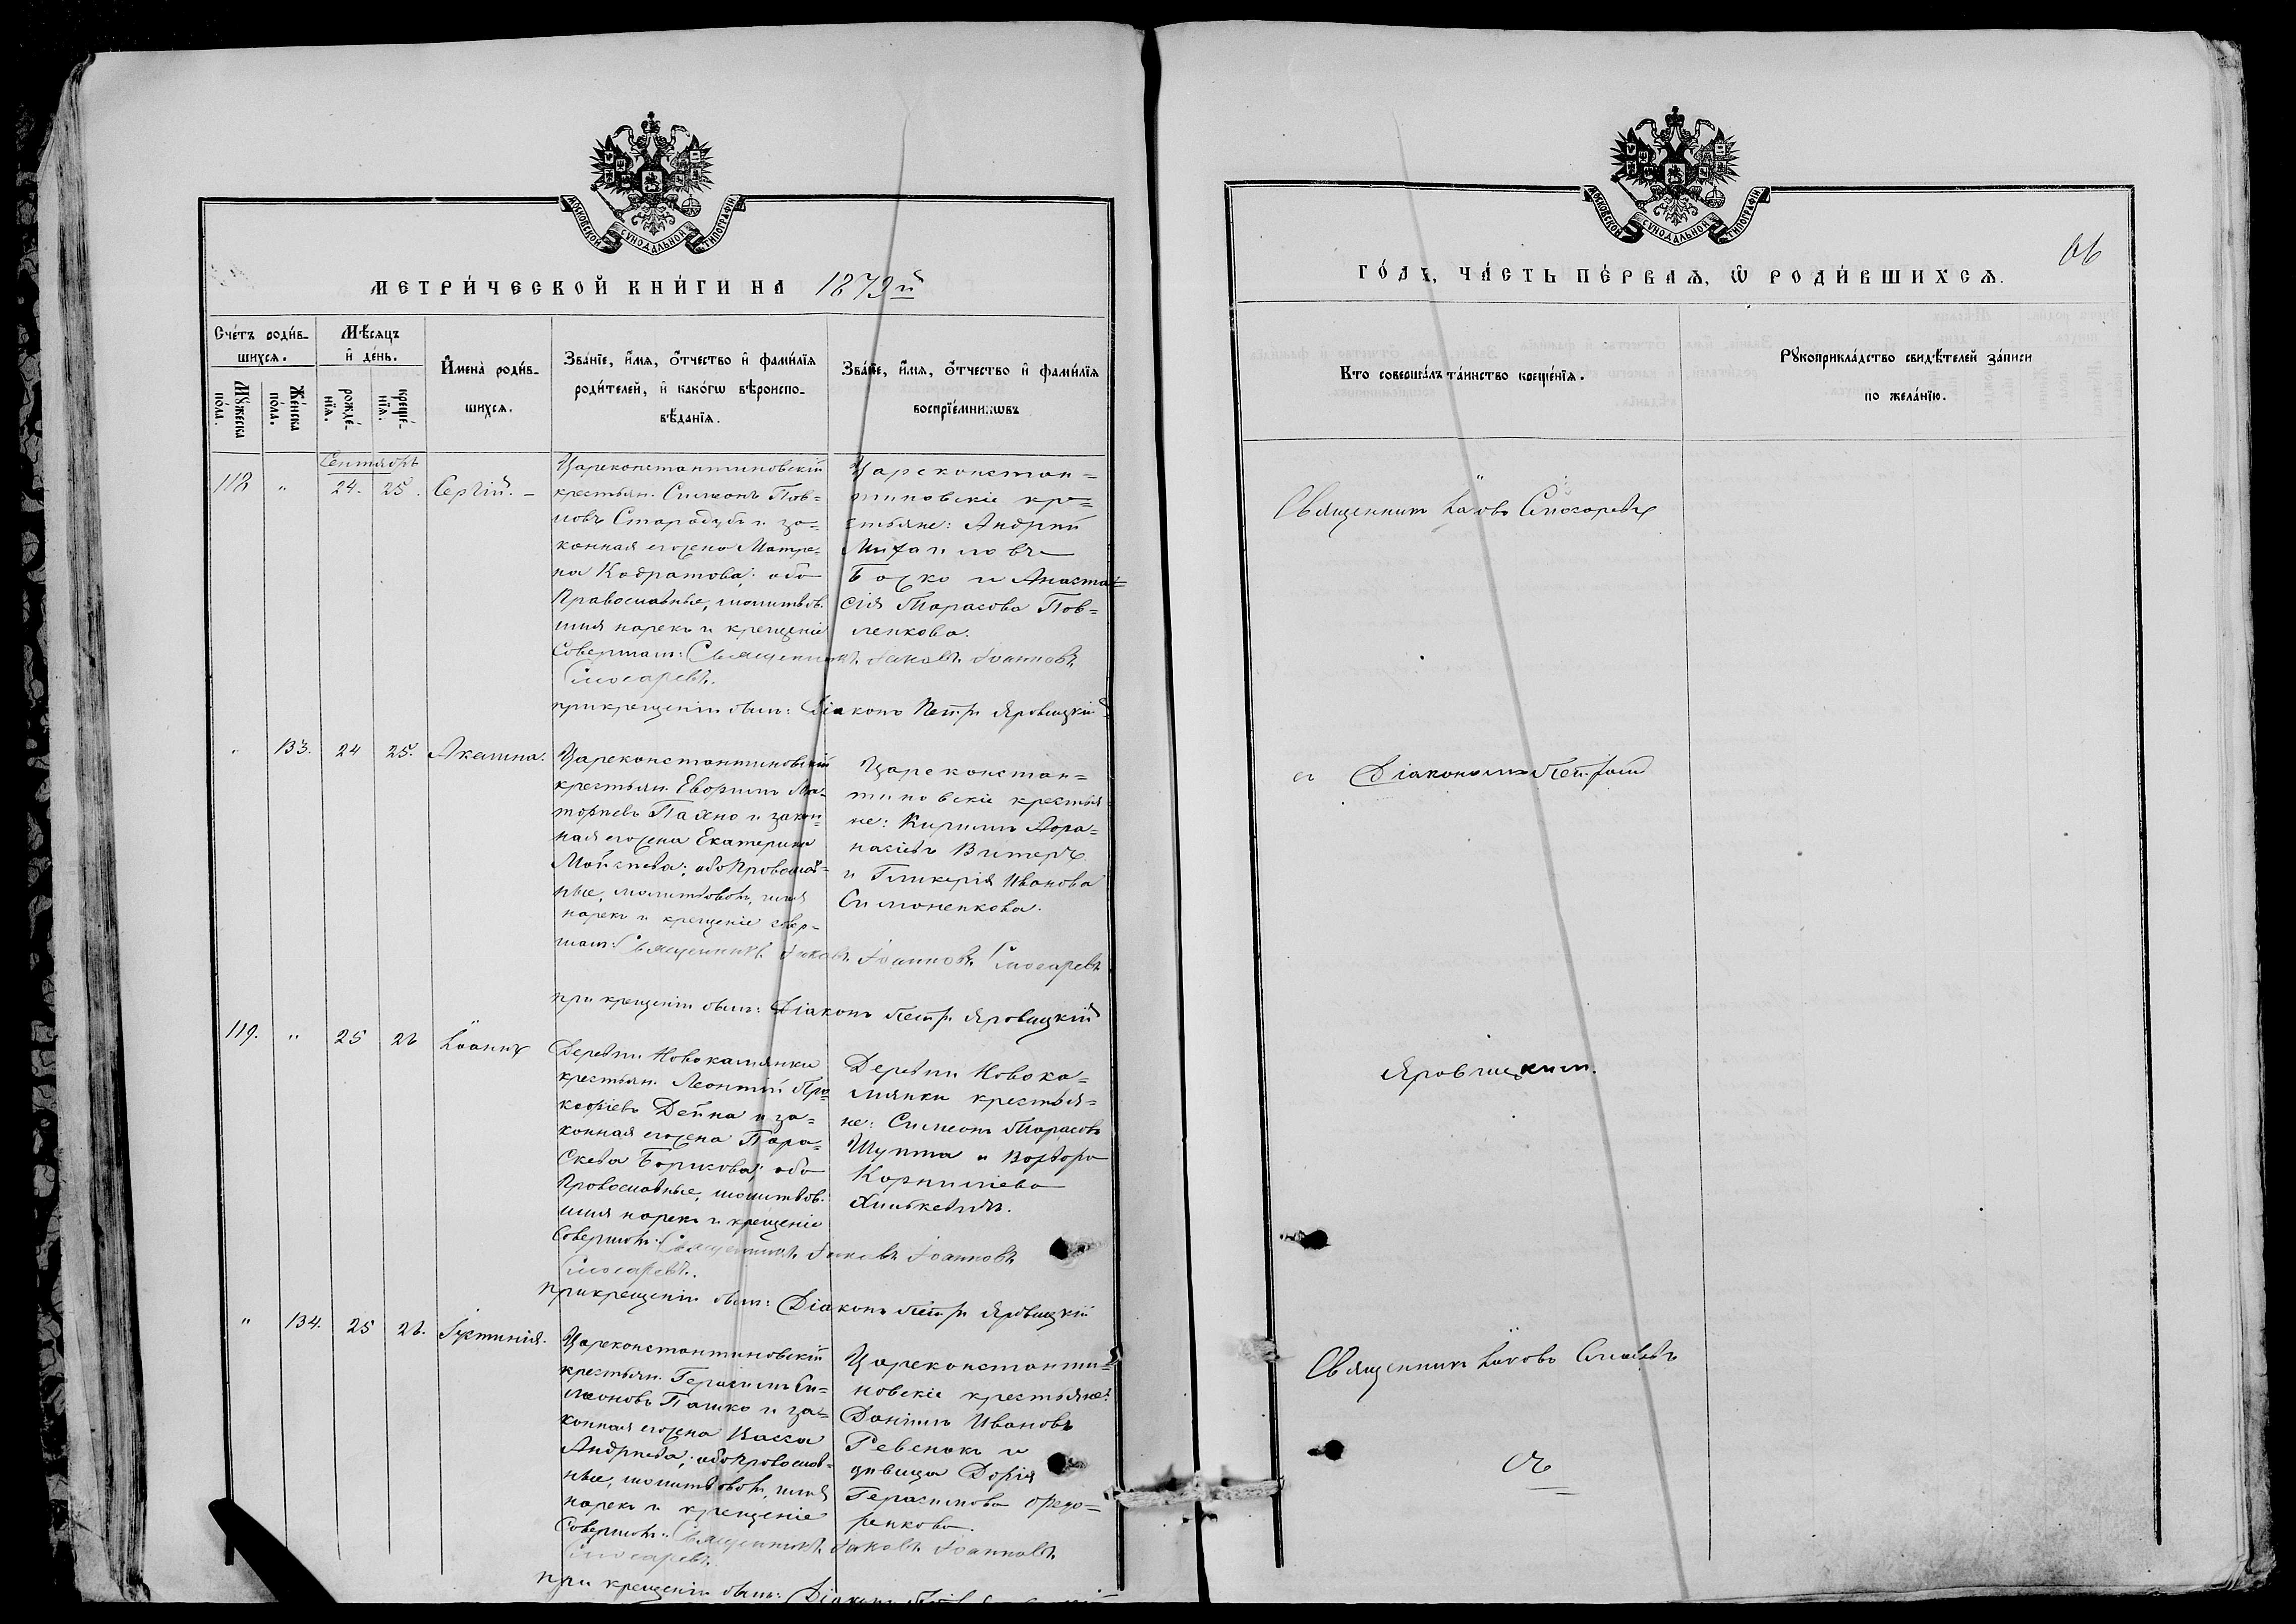 МОСКОВСКОЙ СѴНОДАЛЬНОЙ ТИПОГРАФІИ
МЕТРИ́ЧЕСКОЙ КНИ́ГИ НА 1879й
Сче́тъ роди́в-
шихся.
Мѣ́сяцъ
и҆ де́нь.
И҆мена̀ роди́в-
шихся.
Зва́нїе, и҆́мя, ѻ҆́тчество и҆ фами́лїя
роди́телей, и҆ како́гѡ вѣроиспо-
вѣ́данїя.
Зва́нїе, и҆́мя, ѻ҆́тчество и҆ фами́лїя
воспрїе́мникѡвъ
Мꙋ́жеска
по́ла.
Же́нска
по́ла.
рожде́-
нїя.
креще́-
нїя.
Сентябрь
118 " 24. 25. Сергій. –
Цареконстантиновскій
крестьян. Симеонъ Пав=
ловъ Стародубъ и за=
конная его жена Матре=
на Кодратова; оба
Православные, молитвов.
имя нарекъ и крещеніе
Совершалъ: Священникъ Іаковъ Іоанновъ
Слюсаревъ.
при крещеніи былъ: Діаконъ Петръ Яровицкій
Цареконстан=
тиновскіе кре=
стьяне: Андрей
Михаиловъ
Божко и Анаста=
сія Тарасова Пав=
ленкова.
" 133. 24 25. Акилина.
Цареконстантиновскій
крестьян. Евфимъ Ма=
торневъ Пахно и закон=
ная его жена Екатерина
Моисеева; оба Православ=
ные, молитвовалъ, имя
нарекъ и крещеніе совер=
шалъ: Священникъ Іаковъ Іоанновъ Слюсаревъ
при крещеніи былъ: Діаконъ Петръ Яровицкій
Цареконстан=
тиновскіе крестья=
не: Кириллъ Афа=
насіевъ Витеръ
и Гликерія Иванова
Симоненкова.
119. " 25 26 Іоаннъ
Деревни Новокамянки
крестьян. Леонтій Про=
кофіевъ Дейна и за=
конная его жена Пара=
скева Борисова; оба
Православные, молитвов.
имя нарекъ и крещеніе
Совершалъ: Священникъ Іаковъ Іоанновъ
Слюсаревъ.
при крещеніи былъ: Діаконъ Петръ Яровицкій
Деревни Новока=
мянки крестья=
не: Симеонъ Тарасовъ
Шупта и Варвара
Корниліева
" 134. 25 26. Іустинія.
Цареконстантиновскій
крестьян. Герасимъ Си=
меоновъ Пашко и за=
конная его жена Васса
Андреева; оба Православ=
ные, молитвовалъ, имя
нарекъ и крещеніе
Совершалъ: Священникъ Іаковъ Іоанновъ
Слюсаревъ.
при крещеніи былъ: Діаконъ
Цареконстанти=
новскіе крестьяне:
Даніилъ Ивановъ
Ребенокъ и
дѣвица Дарія
Герасимова Федо=
ренкова.
МОСКОВСКОЙ СѴНОДАЛЬНОЙ ТИПОГРАФІИ
66
ГО́ДЪ, ЧА́СТЬ ПЕ́РВАЯ, Ѡ҆ РОДИ́ВШИХСЯ.
Кто̀ соверша́лъ та́инство креще́нїя.
Рꙋкоприкла́дство свидѣ́телей за́писи
по жела́нїю.
Священникъ Іаковъ Слюсаревъ
съ Діакономъ Петромъ
Яровицкимъ.
Священникъ Іаковъ
съ